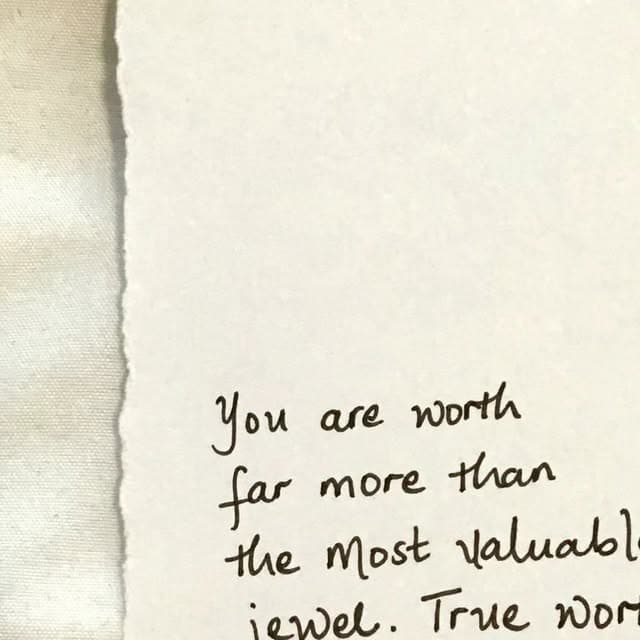 You are worth
far more than
the most valuabl
jewel. True wor